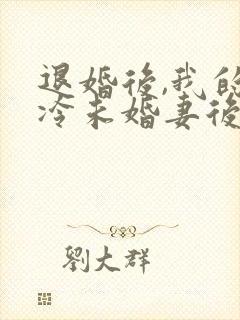 退婚後,我的
冷未婚妻後
劉大群